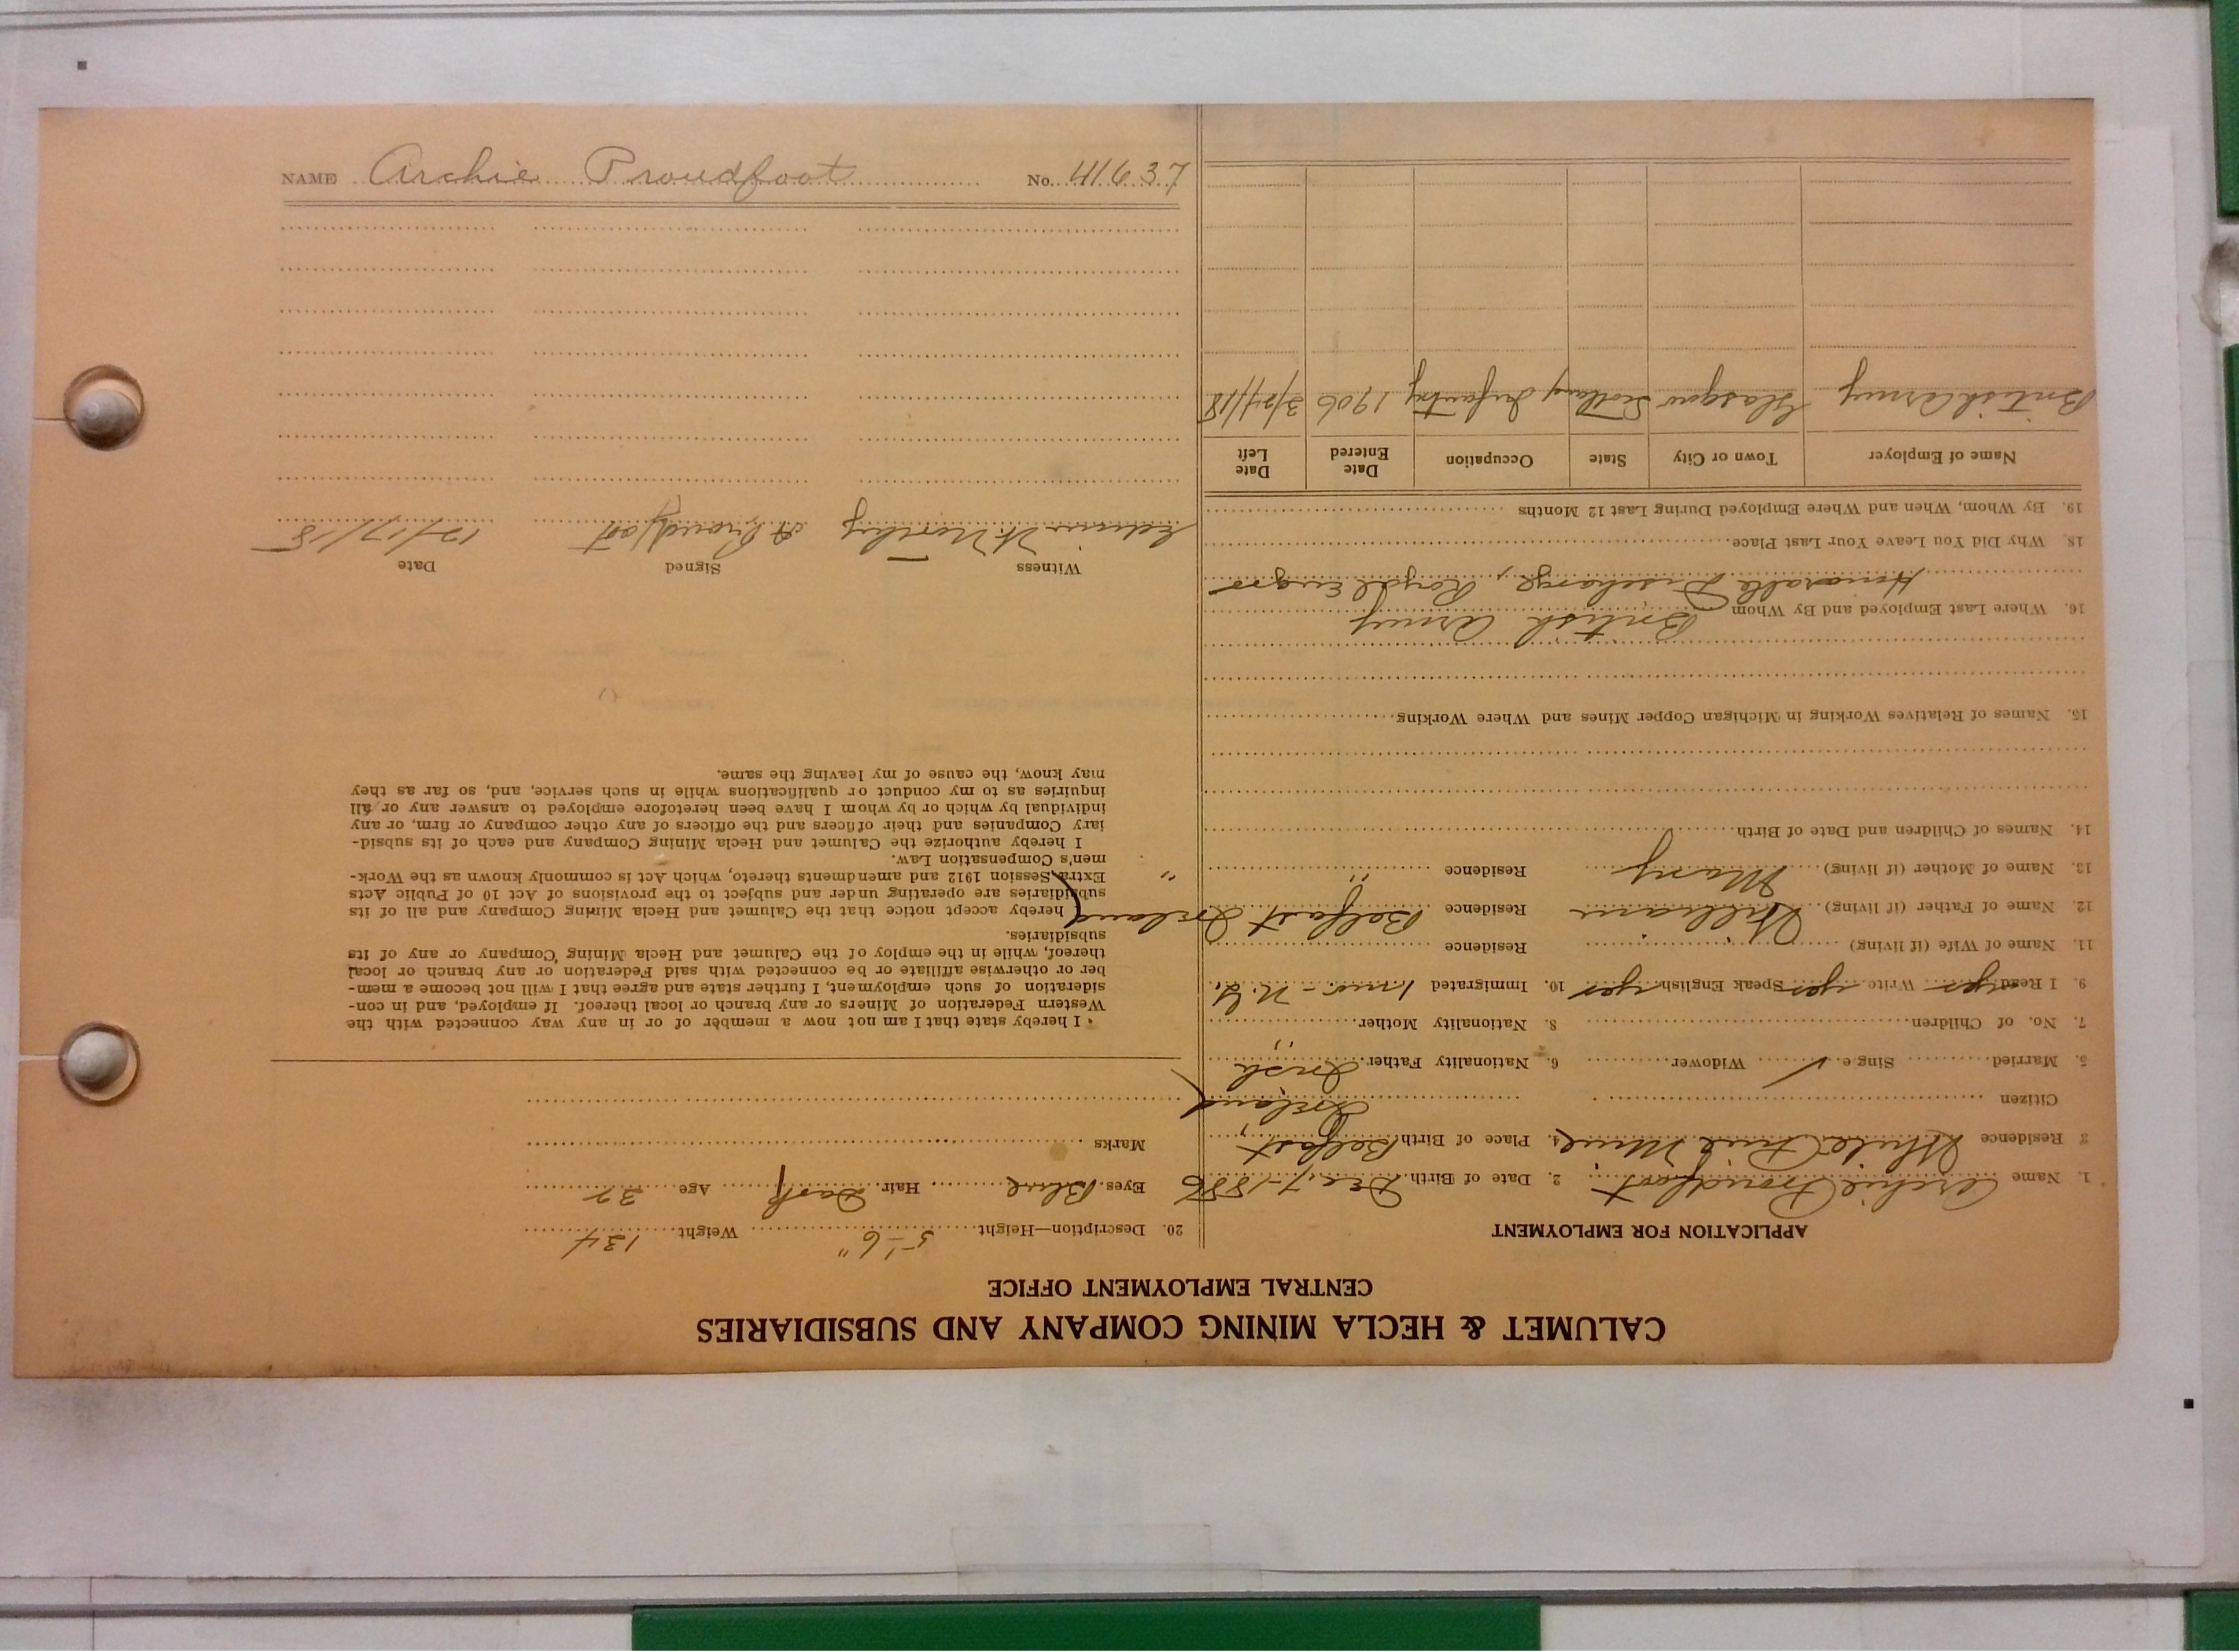 NAME Archie Proudfoot No. 41637
CALUMET & HECLA MINING COMPANY AND SUBSIDIARIES
CENTRAL EMPLOYMENT OFFICE
APPLICATION FOR EMPLOYMENT
1. Name Archie Proudfoot 2. Date of Birth Dec, 7-1886
3 Residence White Pine Mine 4. Place of Birth Belfast,
Citizen Ireland
5. Married Sing e ✓ Widower 6. Nationality Father Irish
7. No. of Children 8. Nationality Mother "
9. I Read yes Write yes Speak English yes 10. Immigrated - N.Y.
11. Name of Wife (if living) Residence
12. Name of Father (if living) William Residence Belfast Ireland
13. Name of Mother (if living) Mary Residence " "
14. Names of Children and Date of Birth
15. Names of Relatives Working in Michigan Copper Mines and Where Working
16. Where Last Employed and By Whom British Army
Honorable Discharge, Royal Engrs
18. Why Did You Leave Your Last Place
19. By Whom, When and Where Employed During Last 12 Months
Name of Employer Town or City State Occupation Date Entered Date Left
British Army Glasgow Scotland Infantry 1906 3/24/18
20. Description—Height 5'-6" Weight 134
Eyes Blue Hair Dark Age 32
Marks
I hereby state that I am not now a member of or in any way connected with the
Western Federation of Miners or any branch or local thereof. If employed, and in con-
sideration of such employment, I further state and agree that I will not become a mem-
ber or otherwise affiliate or be connected with said Federation or any branch or local
thereof, while in the employ of the Calumet and Hecla Mining Company or any of its
subsidiaries.
hereby accept notice that the Calumet and Hecla Mining Company and all of its
subsidiaries are operating under and subject to the provisions of Act 10 of Public Acts
Extra Session 1912 and amendments thereto, which Act is commonly known as the Work-
men's Compensation Law.
I hereby authorize the Calumet and Hecla Mining Company and each of its subsid-
iary Companies and their officers and the officers of any other company or firm, or any
individual by which or by whom I have been heretofore employed to answer any or all
inquiries as to my conduct or qualifications while in such service, and, so far as they
may know, the cause of my leaving the same.
Witness Signed Date
Edwin W. A Proudfoot 12/17/18